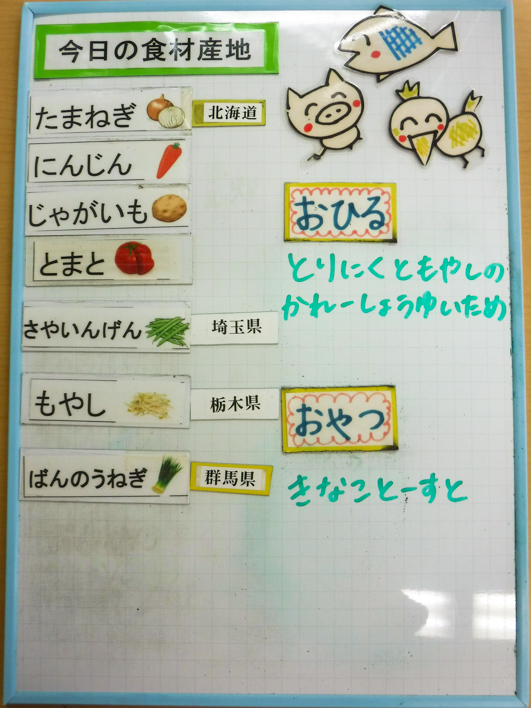 今日の食材産地
たまねぎ 北海道
にんじん
じゃがいも
とまと
さやいんげん 埼玉県
もやし 栃木県
ばんのうねぎ 群馬県
おひる
とりにくともやしの
かれーしょうゆいため
おやつ
きなことーすと